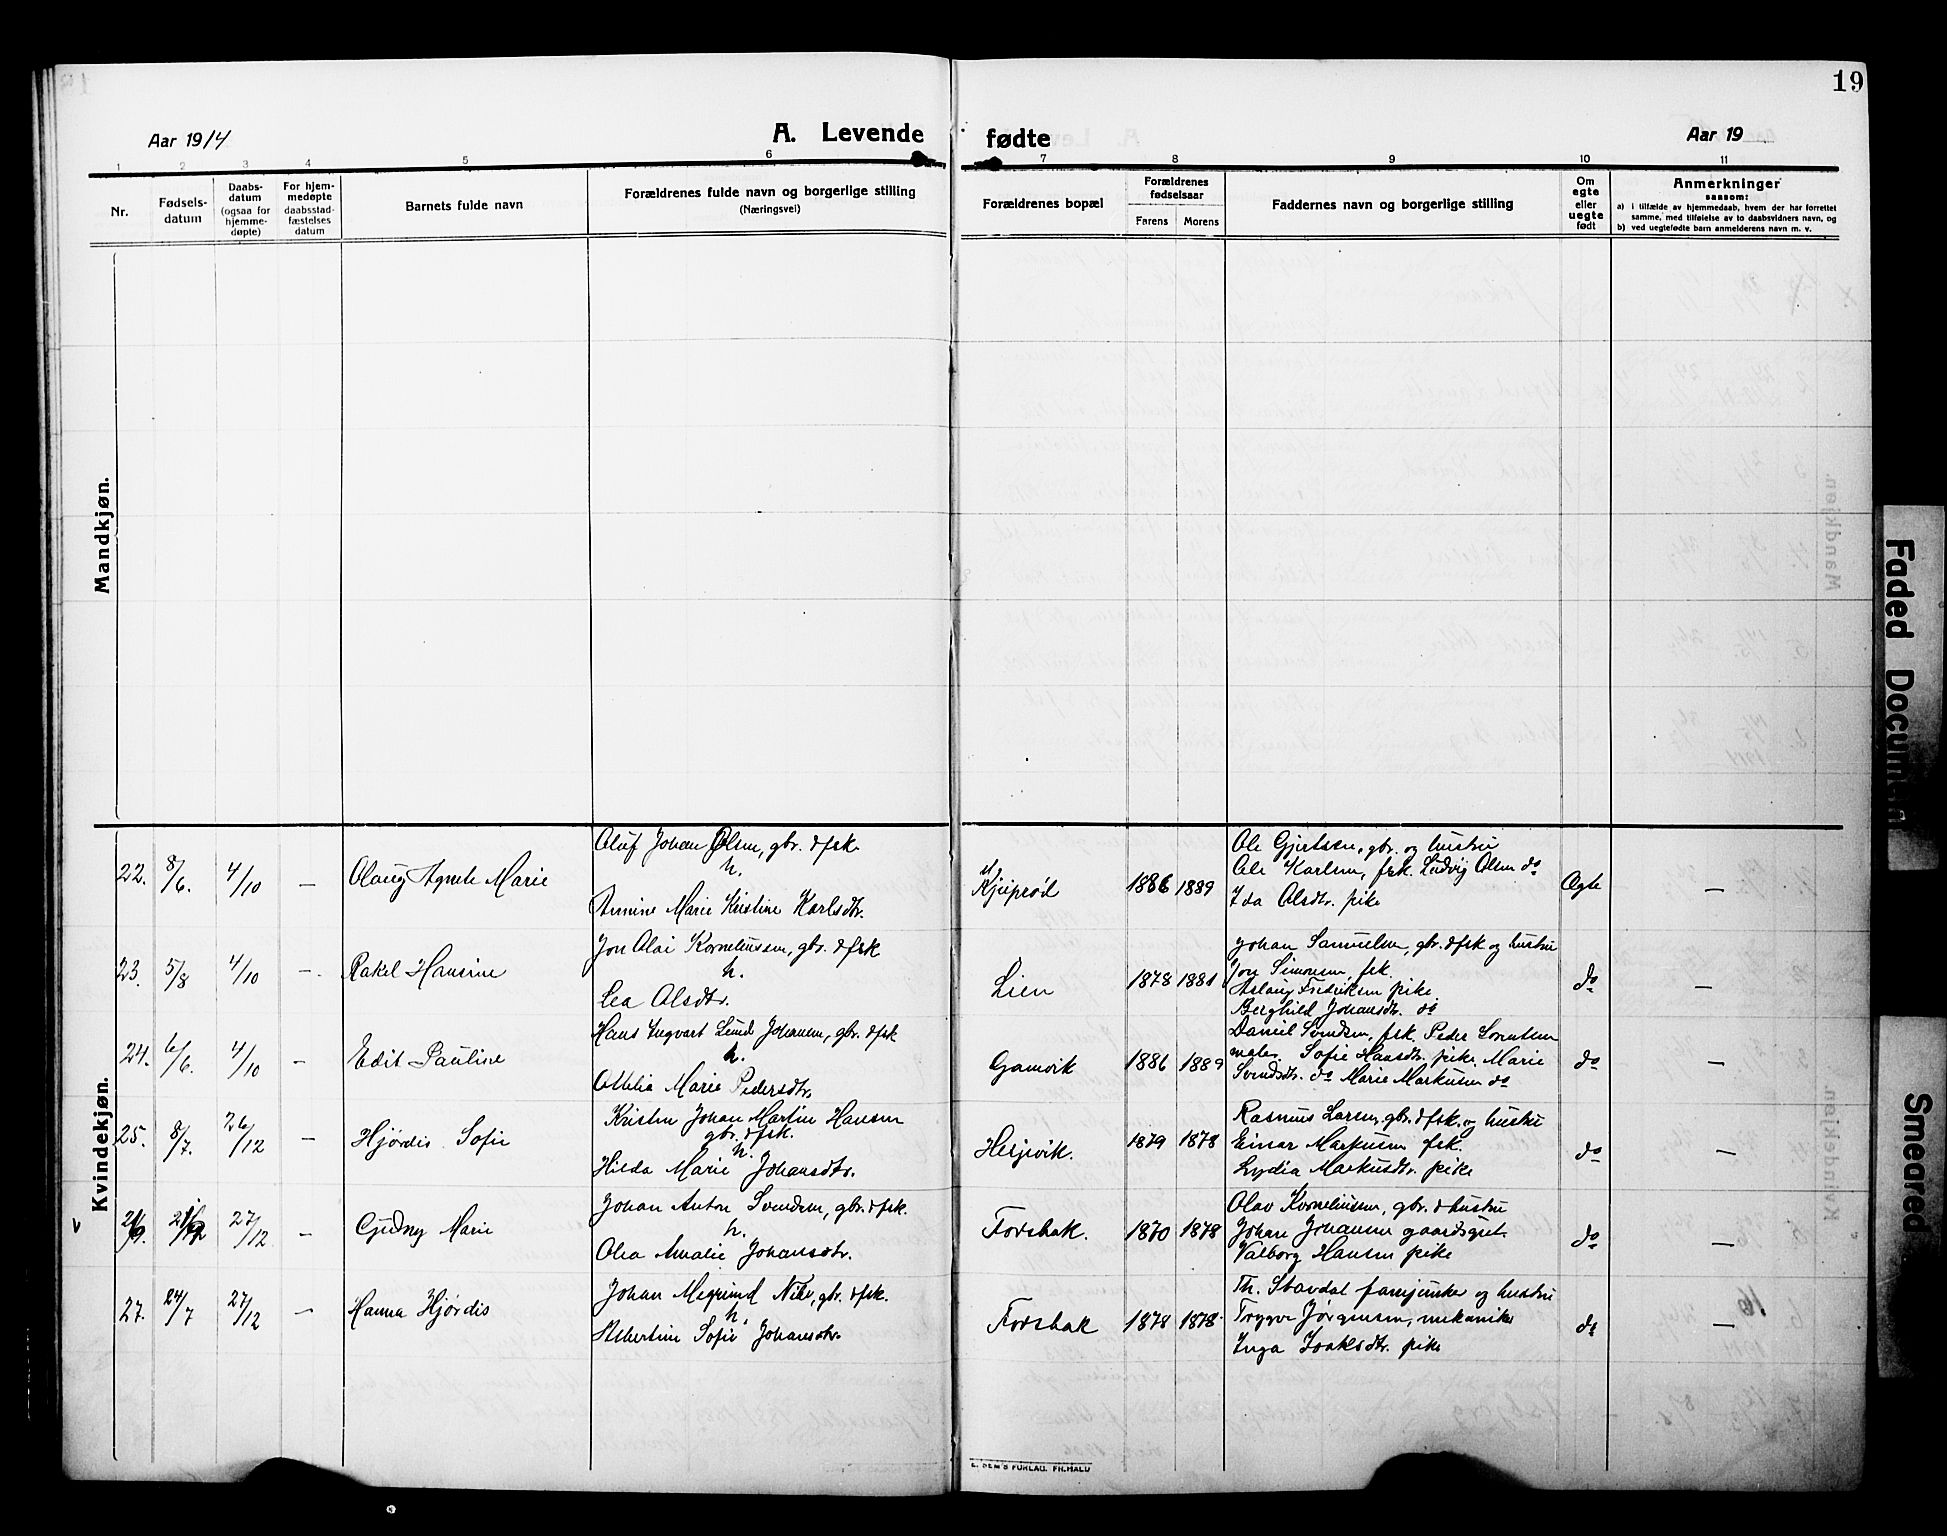 19
Aar 1914
A. Levende fødte
Aar 19
1 2 3 4 5 6 7 8 9 10 11
Nr.
Fødsels-
datum
Daabs-
datum
(ogsaa for
hjemme-
døpte)
For hjem-
medøpte
daabsstad-
fæstelses
datum
Barnets fulde navn
Forældrenes fulde navn og borgerlige stilling
(Næringsvei)
Forældrenes bopæl
Forældrenes
fødselsaar
Farens
Morens
Faddernes navn og borgerlige stilling
Om
egte
eller
uegte
født
Anmerkninger
saasom:
a) i tilfælde av hjemmedaab, hvem der har forrettet
samme, med tilføielse av to daabsvidners navn, og
b) ved uegtefødte barn anmelderens navn m. v.
Mandkjøn.
Kvindekjøn.
22. 8/6. 4/10 — Olaug Agnete Marie
Oluf Johan Olsen, gbr. & fsk.
h.
Annine Marie Kristine Karlsdtr.
1886 1889
Ole Gjertsen, gbr. og hustru
Ole Karlsen, fsk. Ludvig Olsen do
Ida Olsdtr. pike
Ægte —
23. 5/8 4/10 — Rakel Hansine
Jon Olai Korneliussen, gbr. & fsk
h.
Lea Olsdtr.
Lien 1878 1881
Johan Samuelsen, gbr. & fsk og hustru
Jon Simonsen, fsk.
Aslaug Fredriksen pike
Berghild Johansdtr. do
do —
24. 6/6. 4/10 — Edit Pauline
Hans Ingvart Lund Johansen, gbr. & fsk
h.
Othilie Marie Pedersdtr.
Gamvik 1886 1889
Daniel Svendsen, fsk. Peder Lorentsen
maler. Sofie Hansdtr. pike. Marie
Svendsdtr. do Marie Markusen do
do —
25. 8/7. 26/12 — Hjørdis Sofie
Kristen Johan Martin Hansen
gbr. & fsk.
h.
Hilda Marie Johansdtr.
Hesjevik. 1879 1878
Rasmus Larsen, gbr. & fsk. og hustru
Einar Markusen fsk.
Lydia Markusdtr. pike
do —
27/12 — Gudny Marie
Johan Anton Svendsen, gbr. & fsk.
h.
Olea Amalie Johansdtr.
Forsbak. 1870 1878
Olav Korneliussen, gbr. & hustru
Johan Johansen gaardsgut.
Valborg Hansen pike
do —
27. 24/7 27/12 — Hanna Hjørdis
Johan gbr. & fsk.
h.
Albertine Sofie Johansdtr.
Forsbak 1878 1878.
Th. Stavdal fanejunker og hustru
Trygve Jørgensen, mekaniker
Inga Isaksdtr. pike
do —
E. SEM'S FORLAG. FR.HALD
Faded Document
Smeared